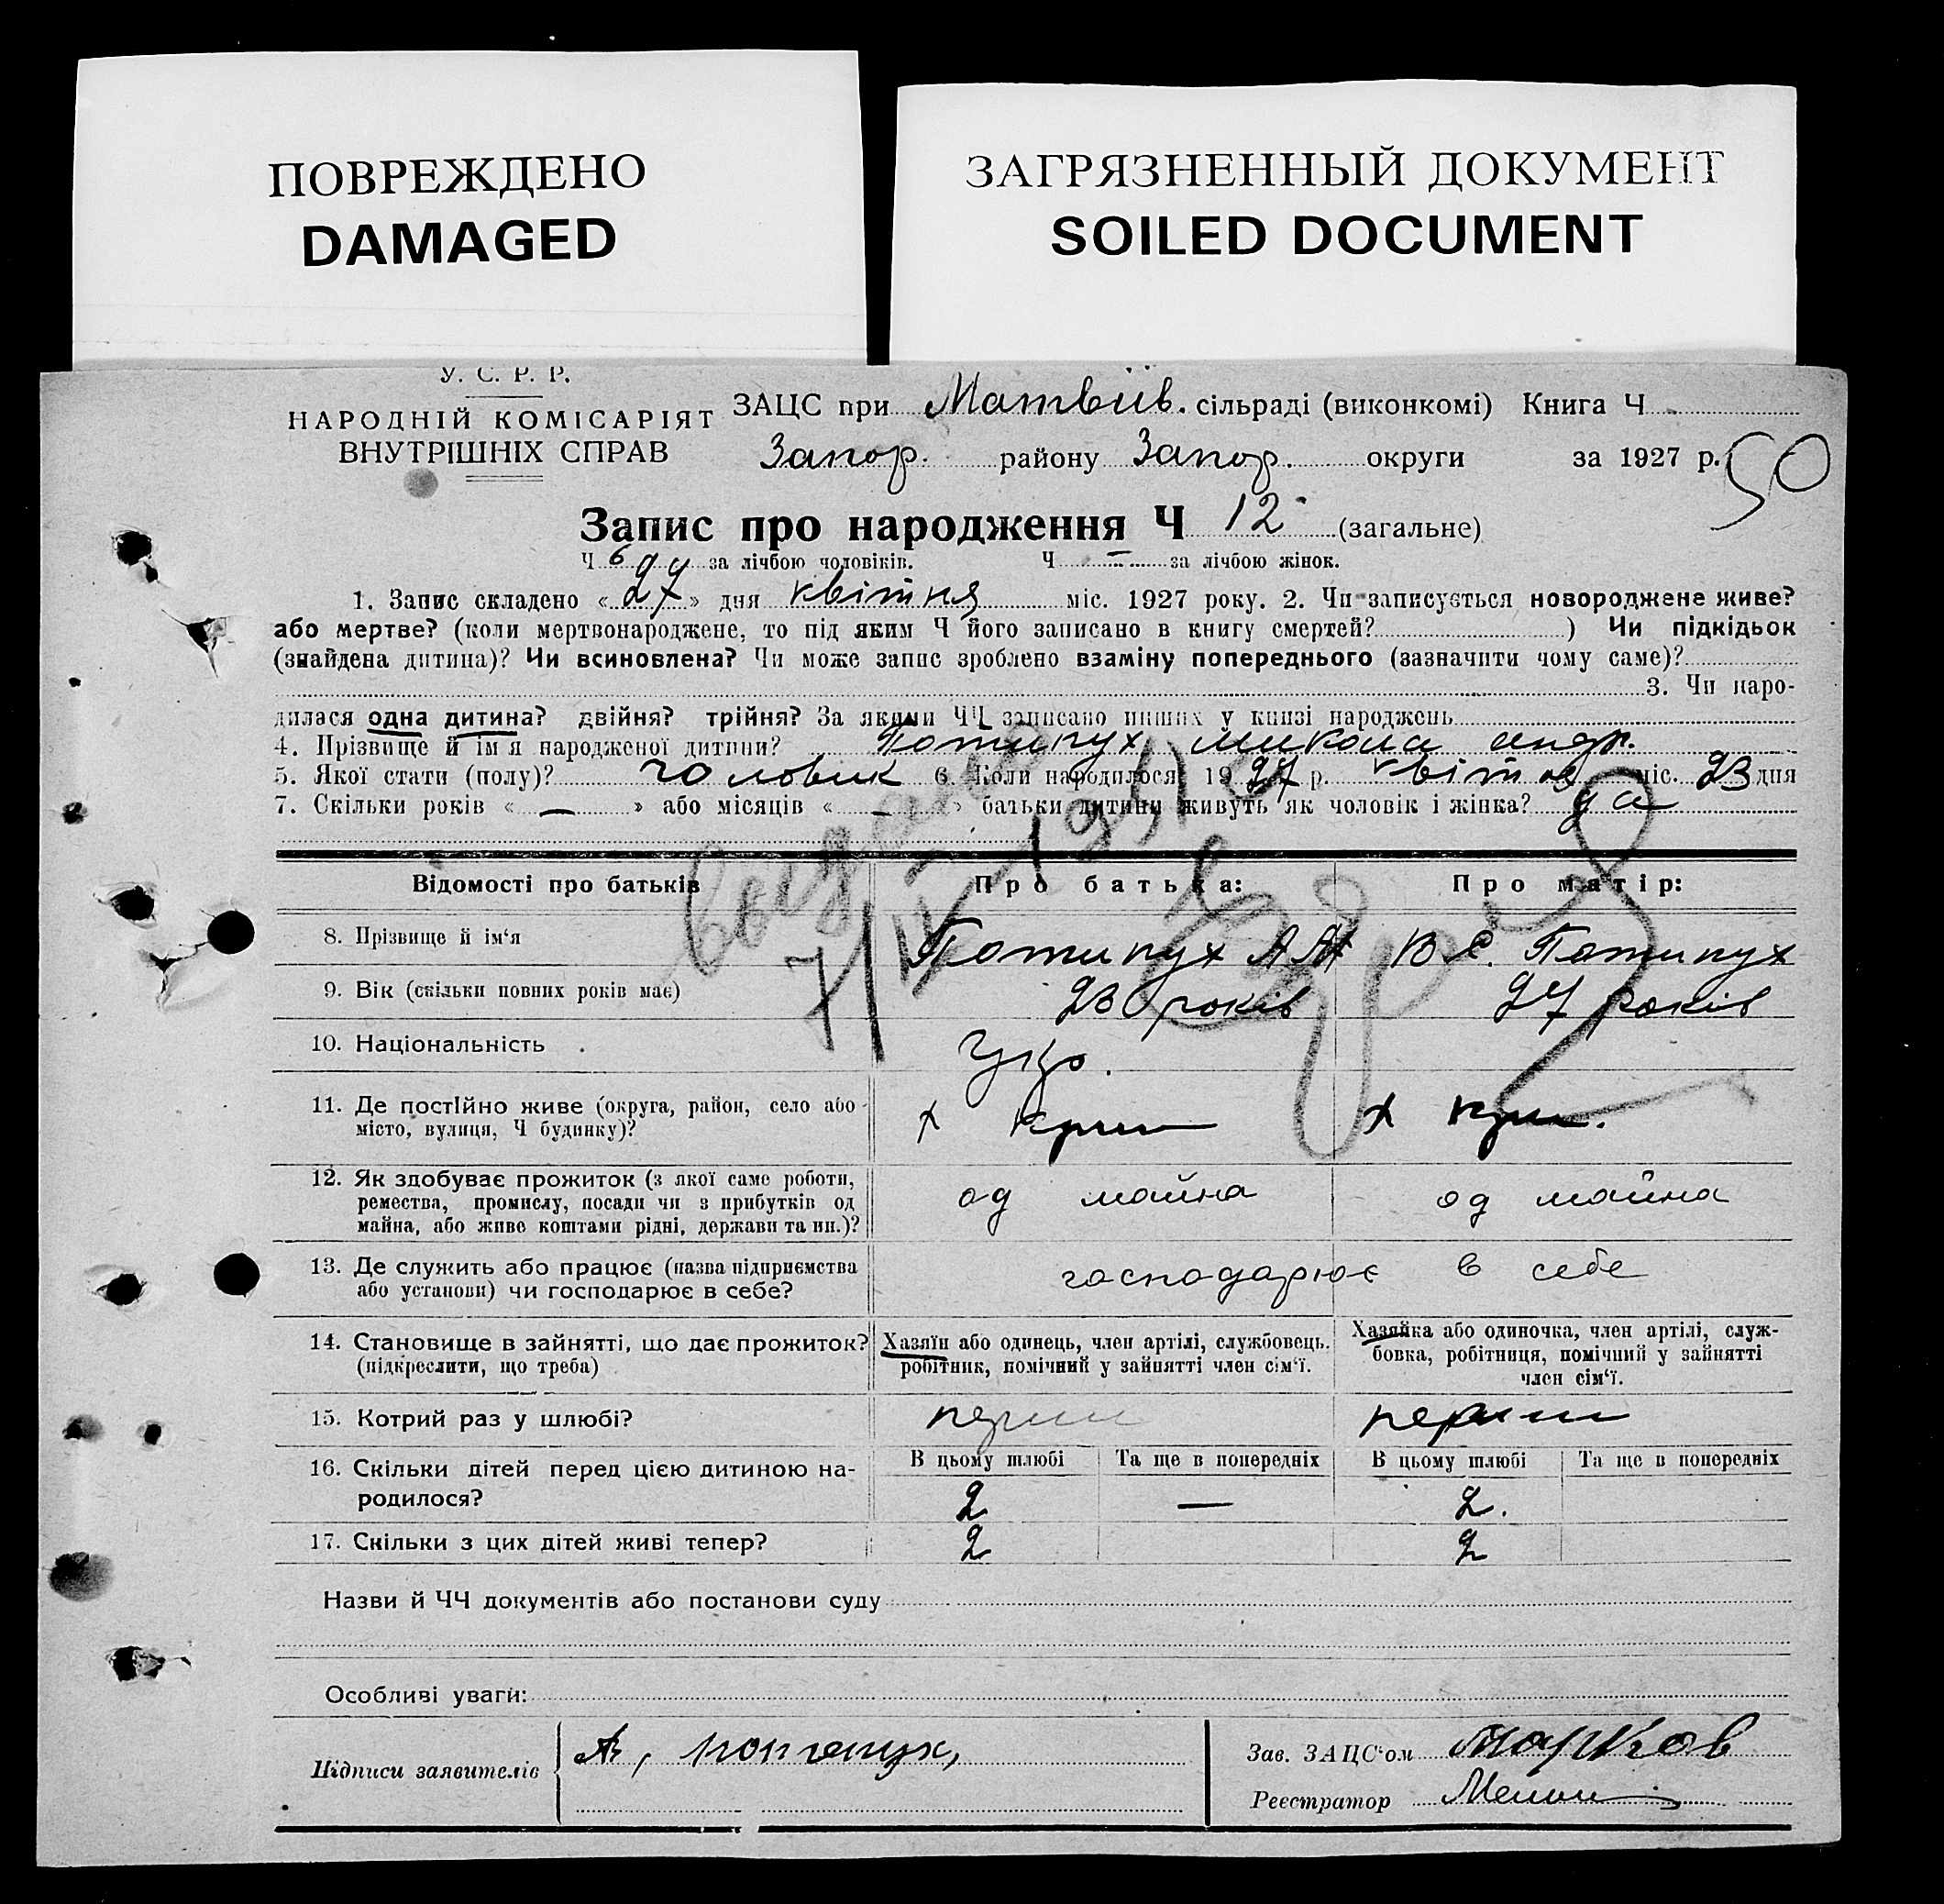 ПОВРЕЖДЕНО
DAMAGED
ЗАГРЯЗНЕННЫЙ ДОКУМЕНТ
SOILED DOCUMENT
У. С. Р. Р.
НАРОДНІЙ КОМІСАРІЯТ
ВНУТРІШНІХ СПРАВ
ЗАЦС при Матвіїв. сільраді (виконкомі) Книга Ч
Запор. району Запор. округи за 1927 р.
50
Запис про народження Ч 12 (загальне)
Ч 6 за лічбою чоловіків. Ч – за лічбою жінок.
1. Запис складено « 27 » дня квітня міс. 1927 року. 2. Чи записується новороджене живе?
або мертве? (коли мертвонароджене, то під яким Ч його записано в книгу смертей? ) Чи підкідьок
(знайдена дитина)? Чи всиновлена? Чи може запис зроблено взаміну попереднього (зазначити чому саме)?
3. Чи наро-
дилася одна дитина? двійня? трійня? За якими ЧЧ записано инших у книзі народжень
4. Прізвище й ім'я народженої дитини? Потипух Микола андр.
5. Якої стати (полу)? чоловик 6. Коли народилося 19 27 р. квітня міс. 23 дня
7. Скільки років « — » або місяців « – » батьки дитини живуть як чоловік і жінка? да
выдано
7/IV 1951
Відомості про батьків
Про батька:
Про матір:
8. Прізвище й ім'я
Потипух А
В Є. Потипух
9. Вік (скільки повних років має)
23 років
27 років
10. Національність
Укр.
11. Де постійно живе (округа, район, село або
місто, вулиця, Ч будинку)?
х Крив
х Крив.
12. Як здобуває прожиток (з якої саме роботи,
ремества, промислу, посади чи з прибутків од
майна, або живе коштами рідні, держави та ин.)?
од майна
од майна
13. Де служить або працює (назва підприємства
або установи) чи господарює в себе?
господарює в себе
14. Становище в зайнятті, що дає прожиток?
(підкреслити, що треба)
Хазяїн або одинець, член артілі, службовець.
робітник, помічний у зайнятті член сім'ї.
Хазяйка або одиночка, член артілі, служ-
бовка, робітниця, помічний у зайнятті
член сім'ї.
15. Котрий раз у шлюбі?
перши
перши
16. Скільки дітей перед цією дитиною на-
родилося?
В цьому шлюбі
Та ще в попередніх
В цьому шлюбі
Та ще в попередніх
2
—
2.
17. Скільки з цих дітей живі тепер?
2
2
Назви й ЧЧ документів або постанови суду
Особливі уваги:
Підписи заявителів
А, потапух,
Зав. ЗАЦС'ом Марков
Реєстратор